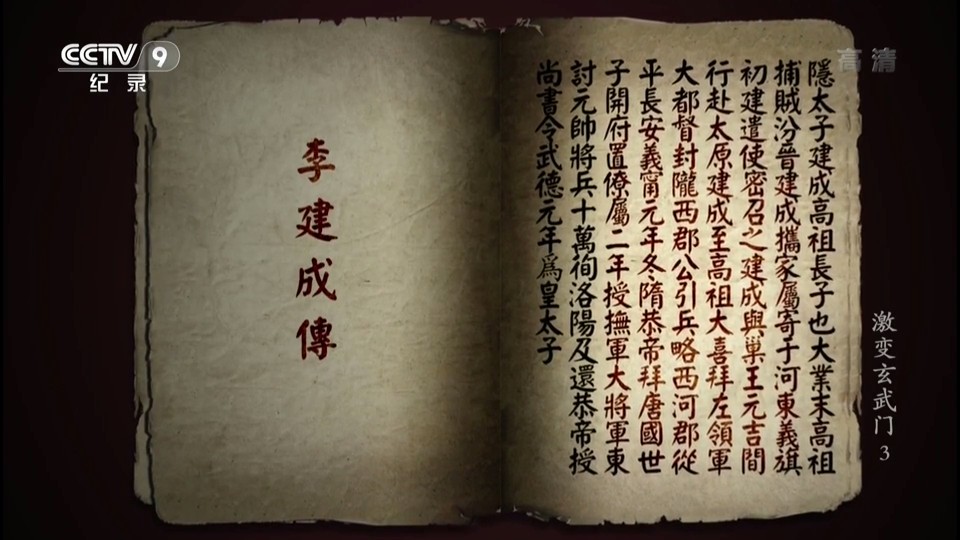 CCTV 9
纪录
高清
隱太子建成高祖長子也大業末高祖
捕賊汾晉建成攜家屬寄于河東義旗
初建遣使密召之建成與巢王元吉間
行赴太原建成至高祖大喜拜左領軍
大都督封隴西郡公引兵略西河郡從
平長安義甯元年冬隋恭帝拜唐國世
子開府置僚屬二年授撫軍大將軍東
討元帥將兵十萬徇洛陽及還恭帝授
尚書令武德元年爲皇太子
李建成傳
激变玄武门 3